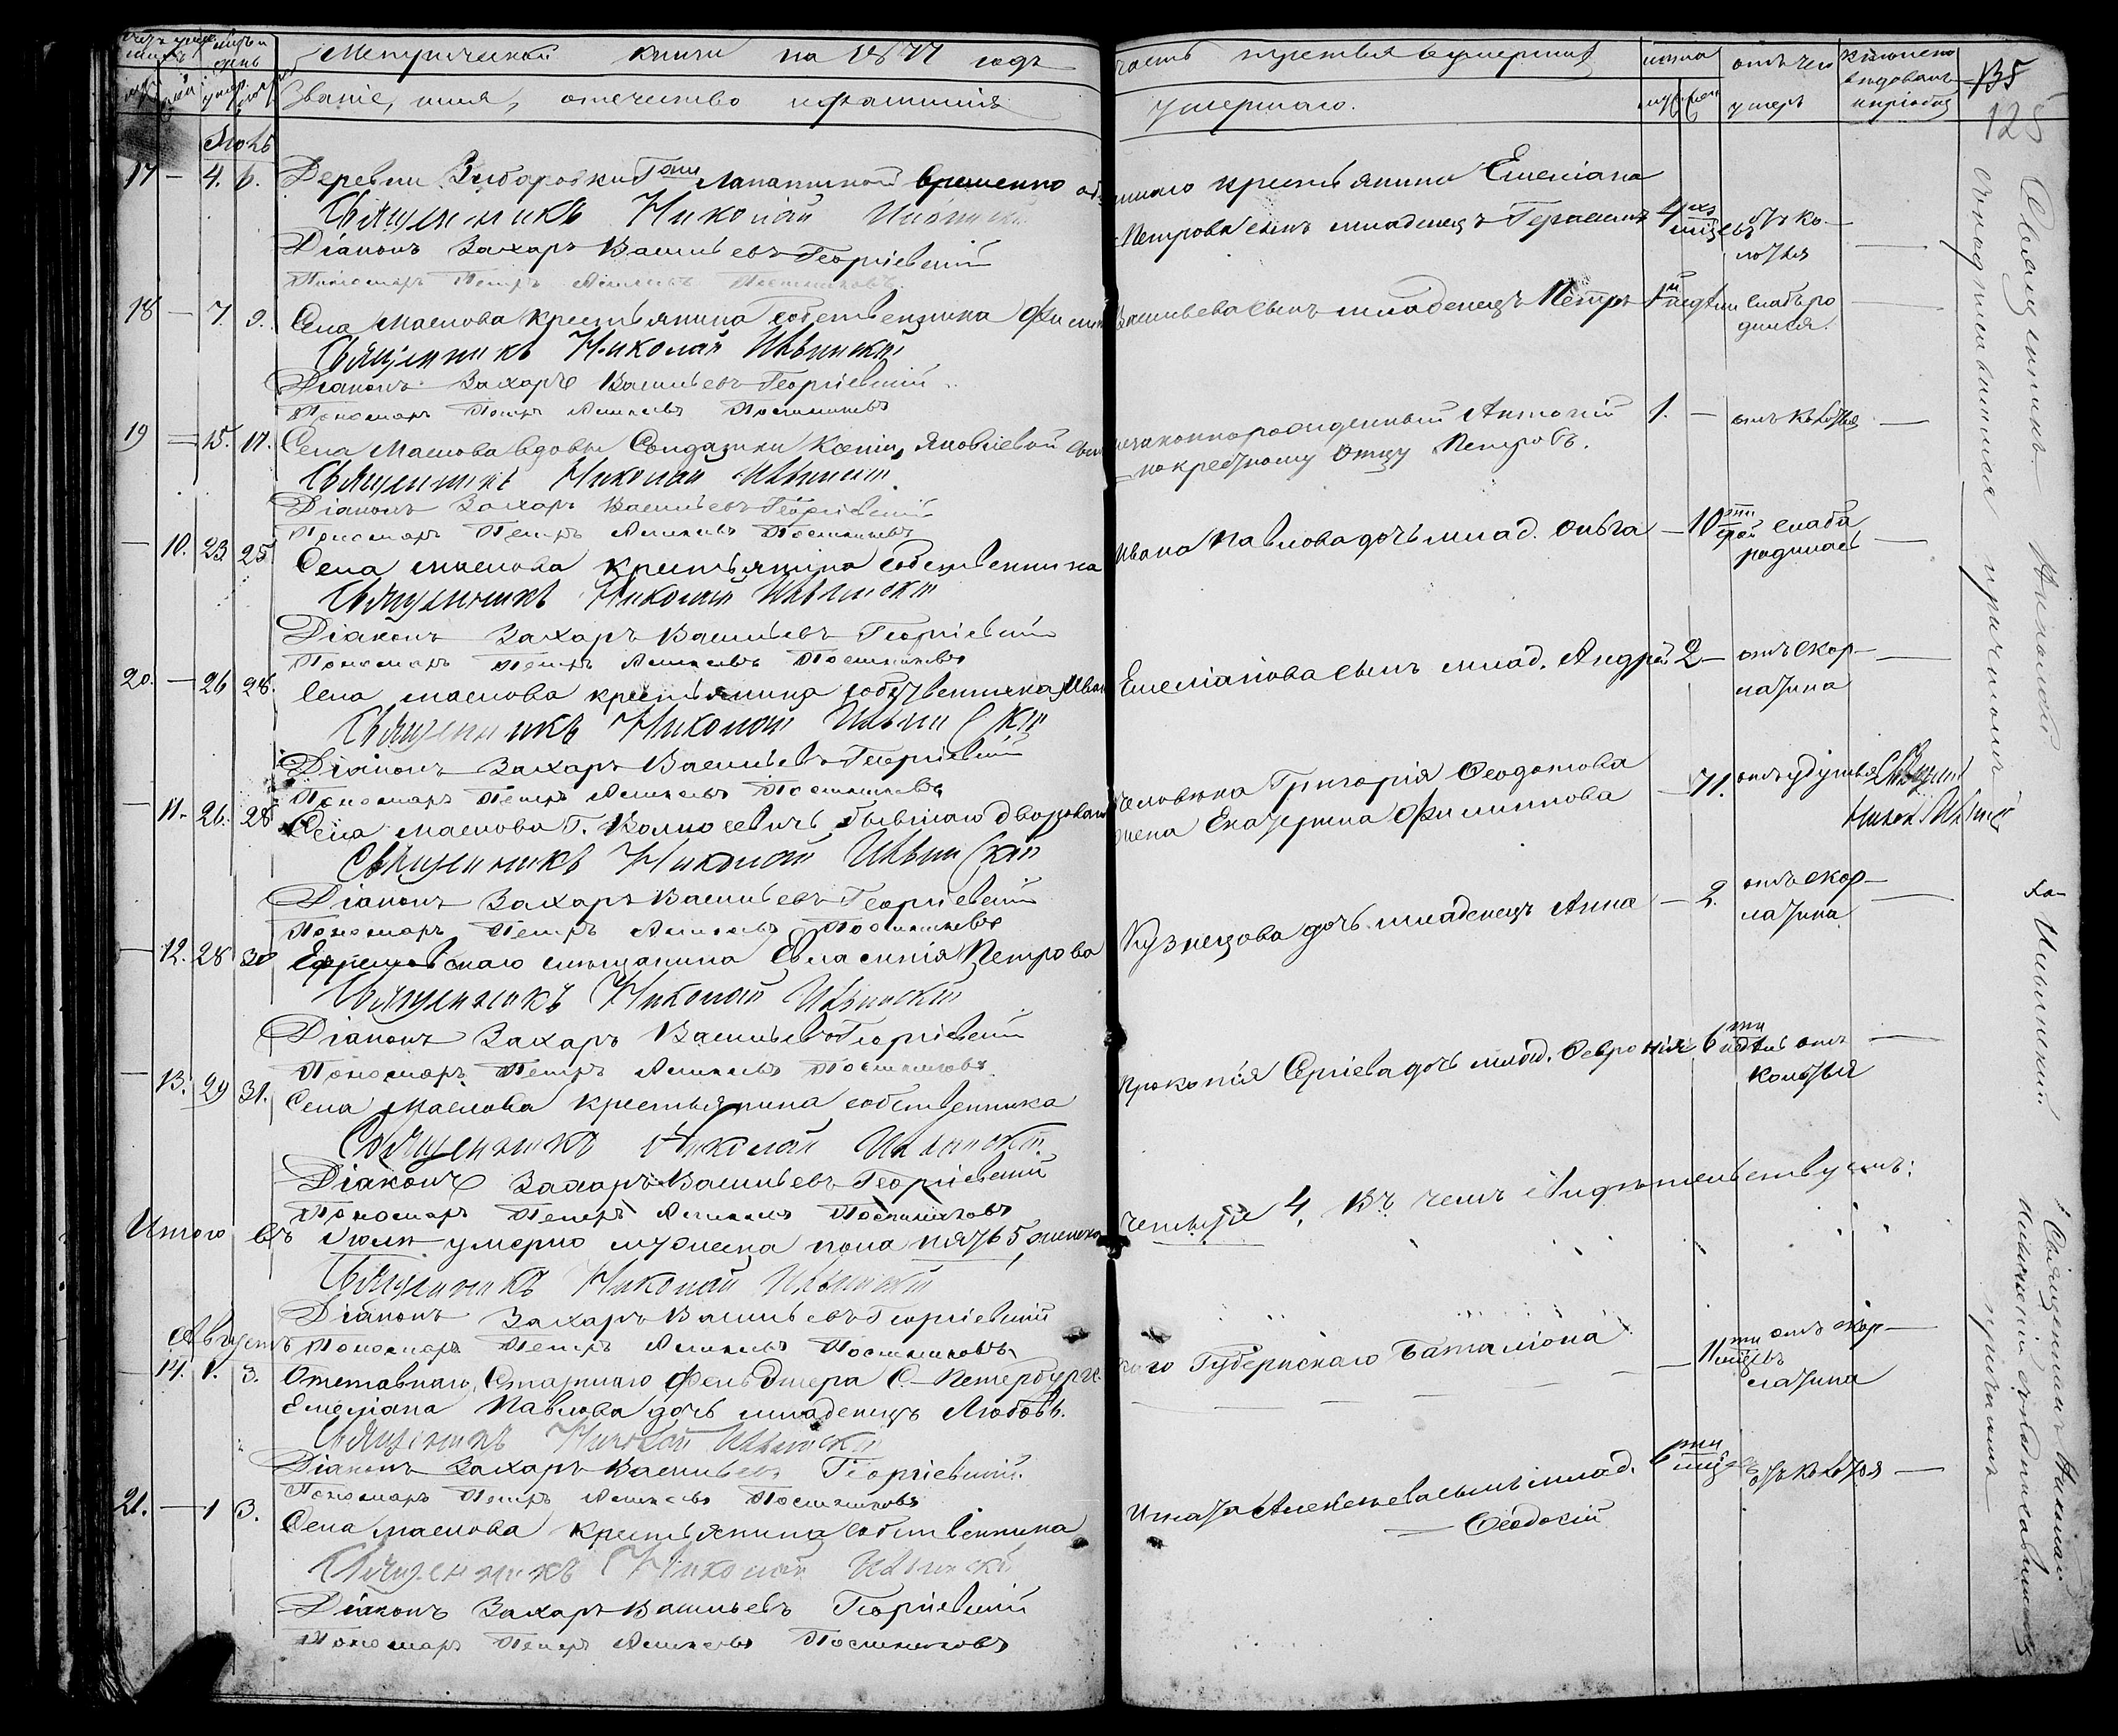 Метрической книги на 1877 годъ часть третья о умершихъ
Званіе, имя, отечество и фамилія умершаго.
лѣта
муж. жен.
отъ чего умеръ
кѣмъ исповѣдованъ и пріобщенъ
135
128
Іюль
17 — 4. 6. Деревни временно крестьянина Емеліана
Петрова сынъ младенецъ Герасимъ 4ехъ мѣсяцевъ отъ колотья —
Священникъ Николай Ильинскій
Діаконъ Захаръ Васильевъ Георгіевскій
Пономарь Петръ Постниковъ
18 — 7. 9. Села Маслова крестьянина собственника Васильева сынъ младенецъ Петръ 1й недѣли слабъ родился. —
Священникъ Николай Ильинскій
Діаконъ Захаръ Васильевъ Георгіевскій
Пономарь Петръ Постниковъ
19 — 15. 17. Села Маслова вдовы Солдатки Ксеніи Яковлевой сынъ незаконнорожденный Антоній 1. — отъ колотья —
по крестному отцу Петровъ.
Священникъ Николай Ильинскій
Діаконъ Захаръ Васильевъ Георгіевскій
Пономарь Петръ Постниковъ
— 10. 23 25 Села Маслова крестьянина собственника Ивана Павлова дочь млад. Ольга — 10ти дней слаба родилась —
Священникъ Николай Ильинскій
Діаконъ Захаръ Васильевъ Георгіевскій
Пономарь Петръ Постниковъ
20. — 26 28. Села Маслова крестьянина собственника Ивана Емеліанова сынъ млад. Андрей 2 — отъ скорлатина —
Священникъ Николай Ильинскій
Діаконъ Захаръ Васильевъ Георгіевскій
Пономарь Петръ Постниковъ
— 11. 26. 28 Села Маслова Г. бывшаго двороваго человѣка Григорія Ѳеодотова
жена Екатерина Филиппова — 71. отъ удушья Священ. Никол. Ильинскій
Священникъ Николай Ильинскій
Діаконъ Захаръ Васильевъ Георгіевскій
Пономарь Петръ Постниковъ
— 12. 28 30 Ефремовскаго мѣщанина Евлампія Петрова Кузнецова дочь младенецъ Анна — 2. отъ скорлатина —
Священникъ Николай Ильинскій
Діаконъ Захаръ Васильевъ Георгіевскій
Пономарь Петръ Постниковъ
— 13. 29 31. Села Маслова крестьянина собственника Прокопія Сергіева дочь млад. Ѳевронія 6ти недѣль отъ колотья —
Священникъ Николай Ильинскій
Діаконъ Захаръ Васильевъ Георгіевскій
Пономарь Петръ Постниковъ
Итого въ Іюлѣ умерло мужеска пола пять 5, женска четыре 4. Въ чемъ свидѣтельствуемъ:
Священникъ Николай Ильинскій
Діаконъ Захаръ Васильевъ Георгіевскій
Пономарь Петръ Постниковъ
Августъ
— 14. 1. 3. Отставнаго Старшаго Фельдшера С.-Петербургскаго Губернскаго Баталіона — 11ти мѣсяцевъ отъ скорлатина —
Емеліана Павлова дочь младенецъ Любовь.
Священникъ Николай Ильинскій
Діаконъ Захаръ Васильевъ Георгіевскій.
Пономарь Петръ Постниковъ
21. — 1 3. Села Маслова крестьянина собственника Игнатія Алексѣева сынъ млад. Ѳеодосій 6ти мѣсяцевъ отъ колотья —
Священникъ Николай Ильинскій
Діаконъ Захаръ Васильевъ Георгіевскій
Пономарь Петръ Постниковъ
Священникъ Николай Ильинскій
Священникъ Николай Ильинскій съ причтомъ